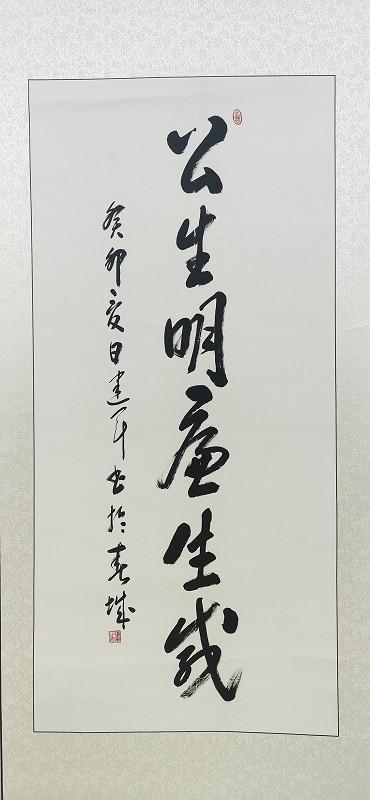 公生明廉生威
癸卯夏日建军书于春城